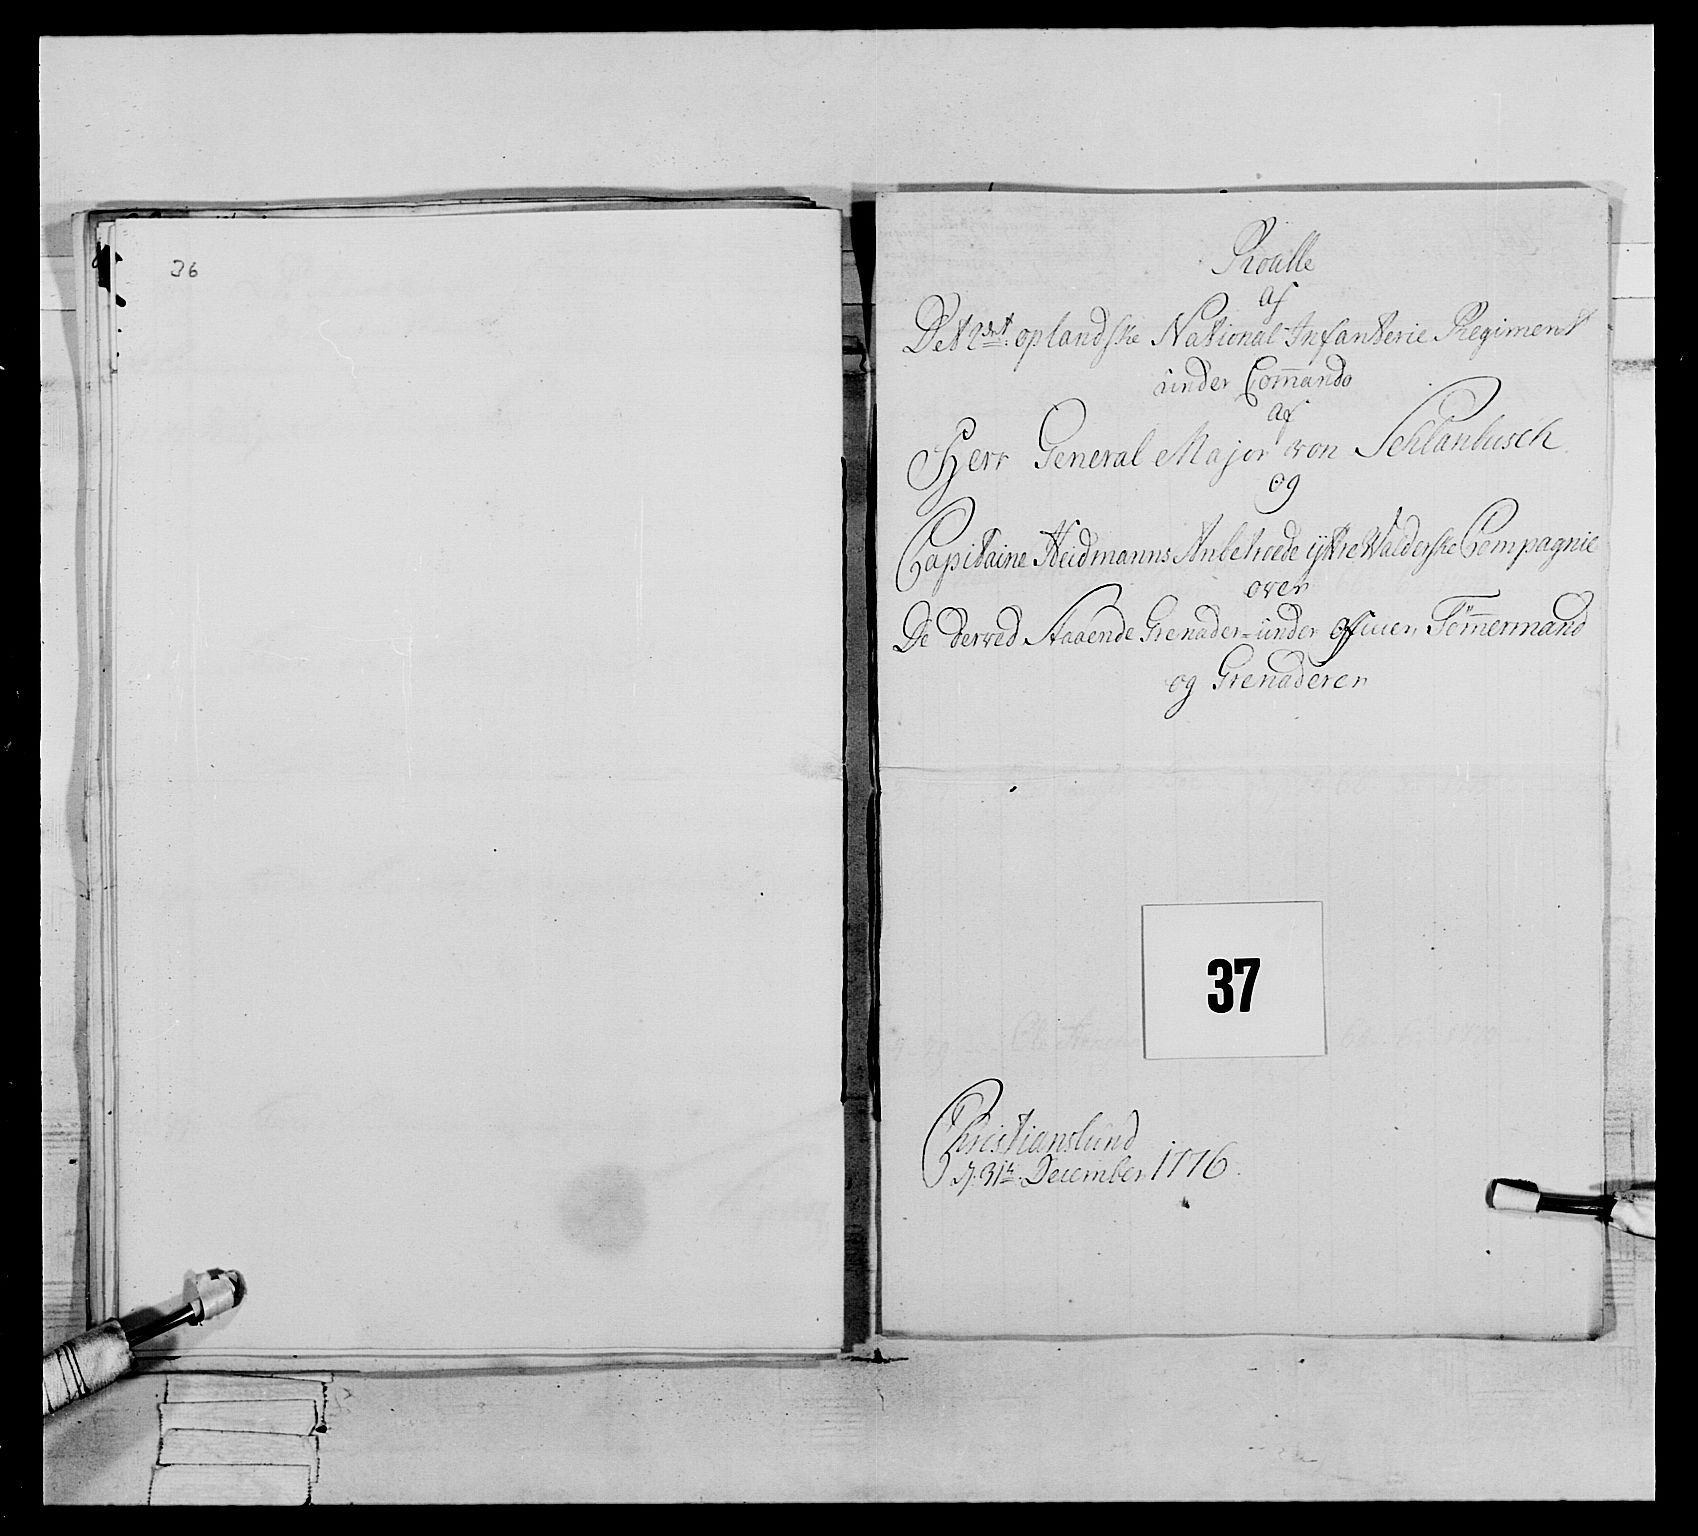 36
Roulle
af
Det 2det oplandske National Infanterie Regiment
under Commando
af
Herr General Major von Schlanbusch
og
Capitaine Heidmanns Anbetroede ÿttre Walderske Compagnie
over
De derved staaende Grenader-under officier, Tömmermand
og Grenaderer
37
Christianslund
d. 31te December 1776.